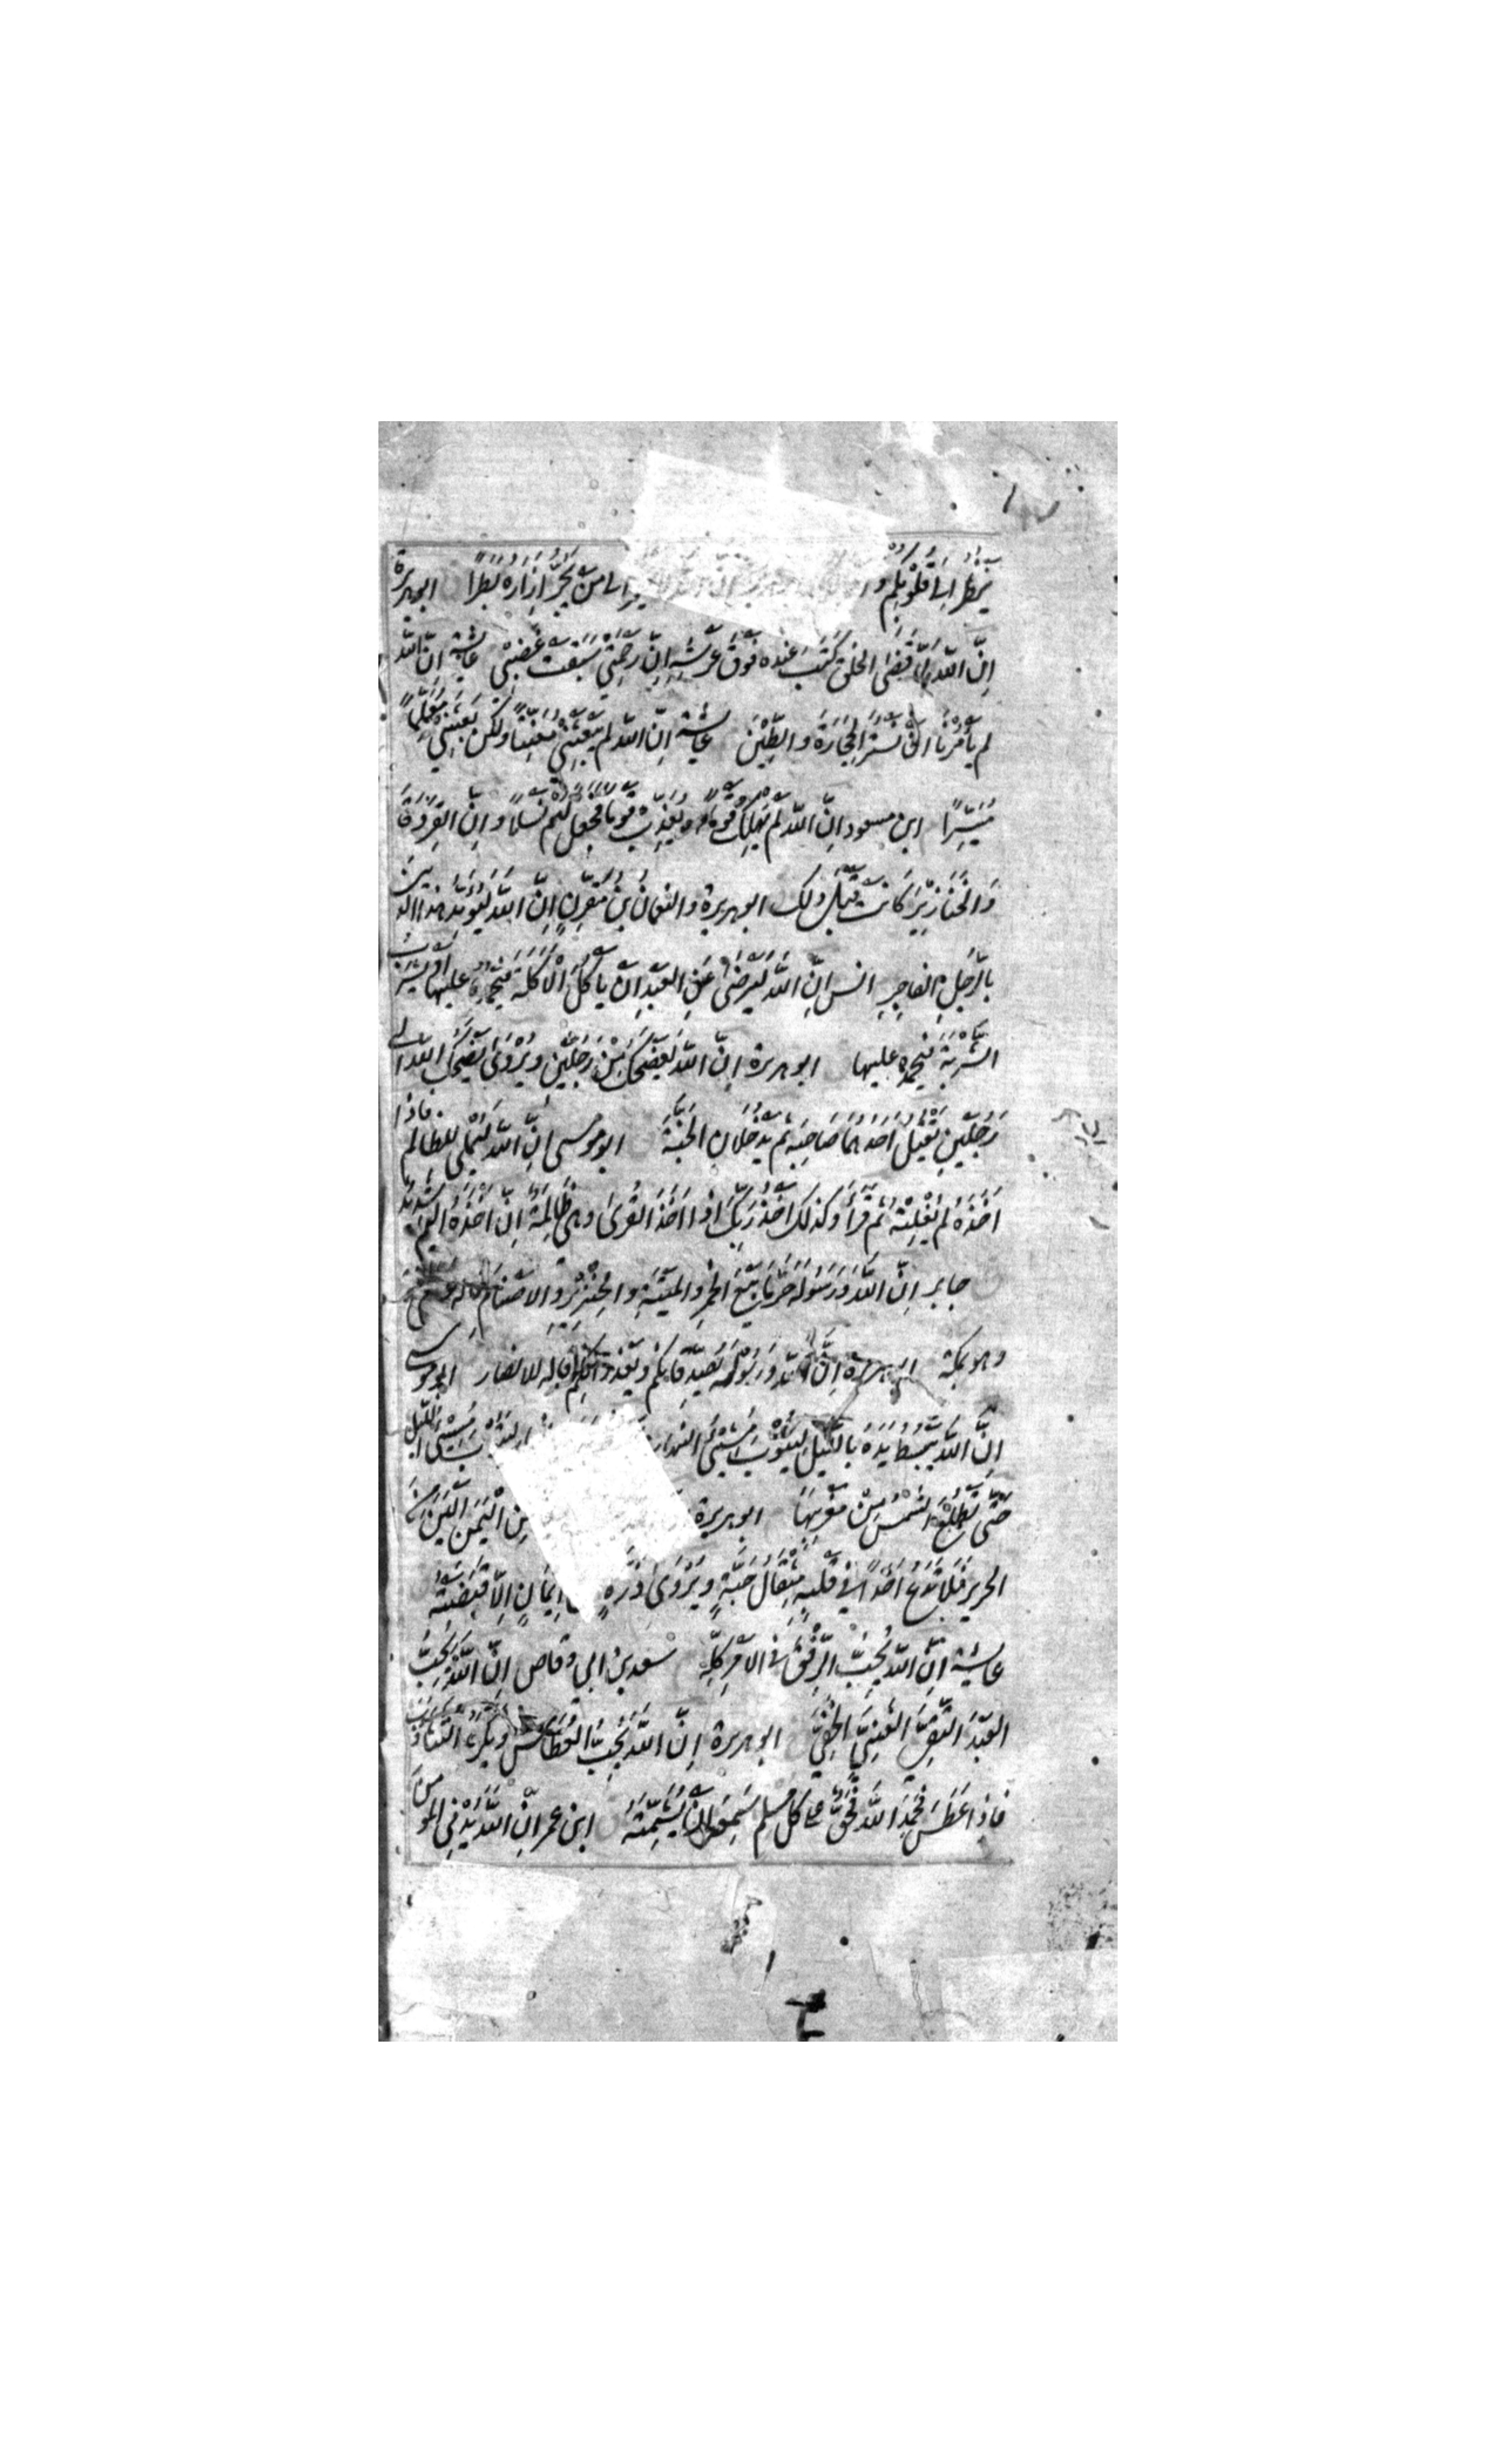 يَنْظُرُ اِلٰى قُلُوْبِكُمْ و الى من يَجُرُّ اِزَارَهُ بَطَرًا ابوهريرة
اِنَّ اللّٰهَ لَمَّا قَضَى الخلقَ كَتَبَ عِنْدَهُ فَوْقَ عَرْشِهِ اِنَّ رَحْمَتِيْ سَبَقَتْ غَضَبِيْ عايشة اِنَّ اللّٰهَ
لم يَأمُرْنَا اَنْ نَسْتُرَ الحِجَارَةَ والطِّيْنَ عايشة اِنَّ اللّٰهَ لَمْ يَبْعَثْنِيْ مُعَنِّتًا ولكن بَعَثَنِيْ مُعَلِّمًا
مُيَسِّرًا ابن مسعود اِنَّ اللّٰهَ لَمْ يُهْلِكْ قَوْمًا او يُعَذِّبْ قَوْمًا فَيَجْعَلَ لَهُمْ نَسْلًا واِنَّ القِرَدَةَ
وَالْخَنَازِيْرَ كَانَتْ قَبْلَ ذلك ابوهريرة والنعمان بن مُقَرِّنٍ اِنَّ اللّٰهَ لَيُؤَيِّدُ هذا الدين
بِالرَّجُلِ الفَاجِرِ انس اِنَّ اللّٰهَ لَيَرْضَى عَنِ العَبْدِ اَنْ يَأكُلَ الْاَكْلَةَ فَيَحْمَدَهُ عليها اَوْ يَشْرَبَ
الشَّرْبَةَ فَيَحْمَدَهُ عليها ابوهريرة اِنَّ اللّٰهَ لَيَضْحَكُ مِنْ رَجُلَيْنِ ويُرْوٰى يَضْحَكُ اللّٰهُ الى
رَجُلَيْنِ يَقْتُلُ اَحَدُهُمَا صَاحِبَهُ ثم يَدْخُلَانِ الجَنَّةَ ابوموسى اِنَّ اللّٰهَ لَيُمْلِي للظالم فاذا
اَخَذَهُ لم يُفْلِتْهُ ثم قَرَأَ وكذلك اَخْذُ رَبِّكَ اذا اَخَذَ القُرٰى وهي ظَالِمَةٌ اِنَّ اَخْذَهُ اَلِيْمٌ شَدِيْدٌ
جابر اِنَّ اللّٰهَ وَرَسُوْلَهُ حَرَّمَا بَيْعَ الخَمْرِ والمَيْتَةِ والخِنْزِيْرِ والاصنام
وهو بمكة ابوهريرة اِنَّ اللّٰهَ وَرَسُوْلَهُ يُصَدِّقَانِكُمْ ويَعْذِرَانِكُمْ قاله للانصار ابوموسى
اِنَّ اللّٰهَ يَبْسُطُ يَدَهُ بِالَّيْلِ لِيَتُوْبَ مُسِيْئُ النهار لِيَتُوْبَ مُسِيْئُ اللَّيْلِ
حَتّٰى تَطْلُعَ الشَّمْسُ مِنْ مَغْرِبِهَا ابوهريرة مِنَ الْيَمَنِ اَلْيَنَ مِنَ
الحرير فَلَا تَدَعُ اَحَدًا فِيْ قَلْبِهِ مِثْقَالُ حَبَّةٍ ويُرْوٰى ذَرَّةٍ اِيْمَانٍ اِلَّا قَبَضَتْهُ
عايشة اِنَّ اللّٰهَ يُحِبُّ الرِّفْقَ فِى الاَمْرِ كُلِّهِ سعد بن ابي وقاص اِنَّ اللّٰهَ يُحِبُّ
العَبْدَ التَّقِيَّ الغَنِيَّ الخَفِيَّ ابوهريرة اِنَّ اللّٰهَ يُحِبُّ العُطَاسَ ويَكْرَهُ التَّثَاؤُبَ
فَاِذَا عَطَسَ فَحَمِدَ اللّٰهَ فَحَقٌّ على كل مسلم سَمِعَهُ اَنْ يُشَمِّتَهُ ابن عمر اِنَّ اللّٰهَ يُدْنِي المؤمن